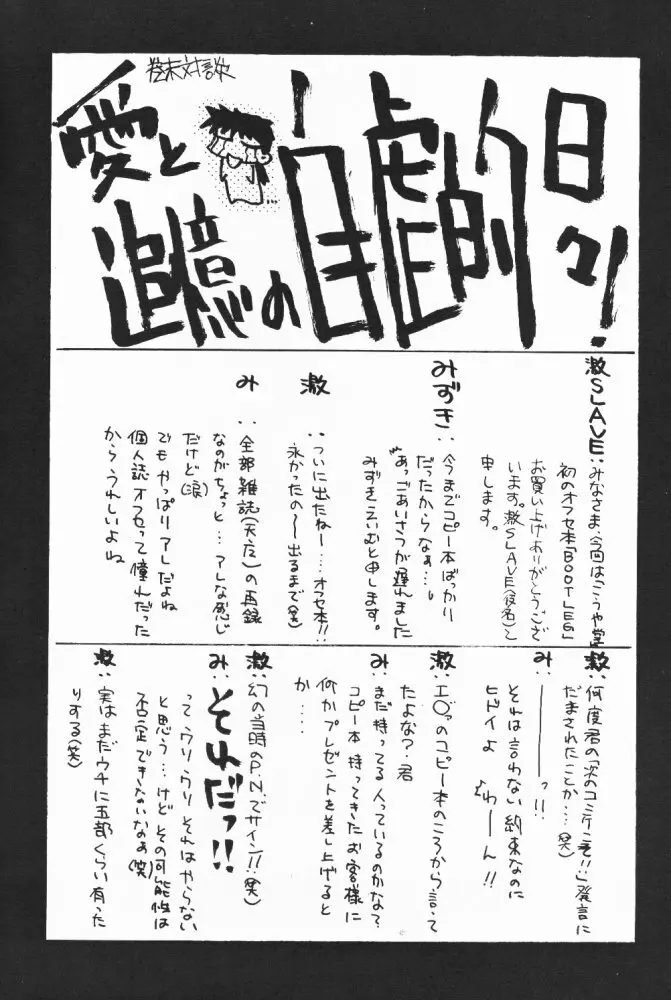 巻末対談
愛と
追憶の
自虐的
日々!
激SLAVE:みなさま、今回はこうや堂
初のオフセ本「BOOTLEG」
お買い上げありがとうござ
います。激SLAVE(仮名)と
申します。
みずき:今までコピー本ばっかり
だったからなぁ…。
あっごあいさつが遅れました
みずきえいむと申します。
激:ついに出たねー…オフセ本!!
永かったの〜出るまで(笑)
み:全部雑誌の再録
なのがちょっと…アレな感じ
だけど(涙)
でもやっぱりアレだよね
個人誌オフセって憧れだった
からうれしいよね
激:何度君の「次のコミケこそ!!」発言に
だまされたことか…(笑)
み:―――っ!!
それは言わない約束なのに
ヒドイよ わーん!!
激:エ○っのコピー本のころから言って
たよな?君
み:まだ持ってる人っているのかな?
コピー本持ってきたお客様に
何かプレゼントを差し上げると
か…
激:幻の当時のP.N.でサイン!!(笑)
み:それだっ!!
ってウソウソそれはやらない
と思う…けどその可能性は
否定できないなぁ(笑)
激:実はまだウチに五部くらい有った
りする(笑)